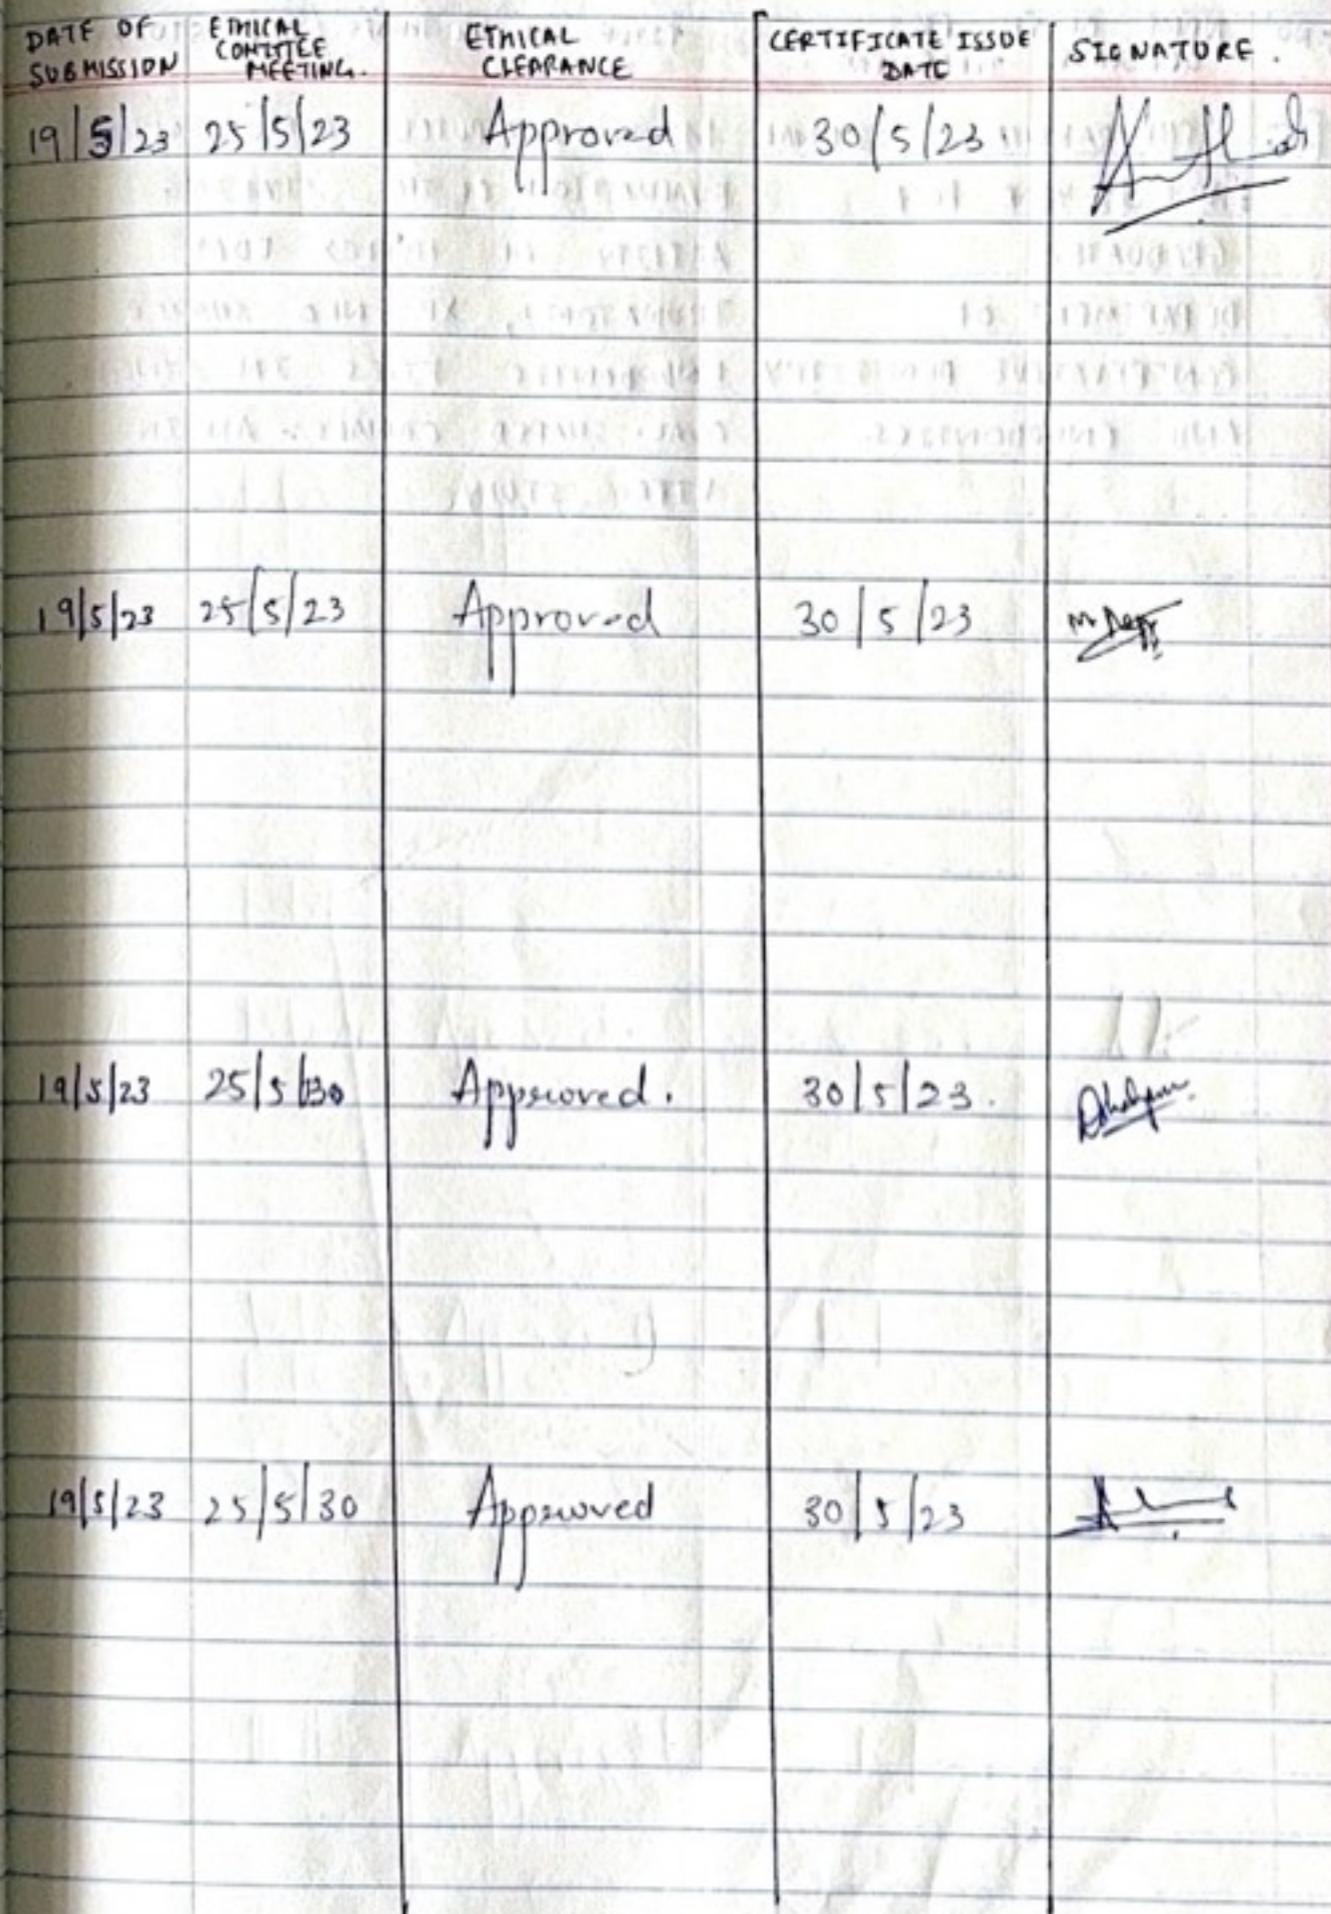 DATE OF SUBMISSION ETHICAL COMITTEE MEETING. ETHICAL CLEARANCE CERTIFICATE ISSUE DATE SIGNATURE.
19/5/23 25/5/23 Approved 30/5/23
19/5/23 25/5/23 Approved 30/5/23
19/5/23 25/5/30 Approved. 30/5/23.
19/5/23 25/5/30 Approved 30/5/23